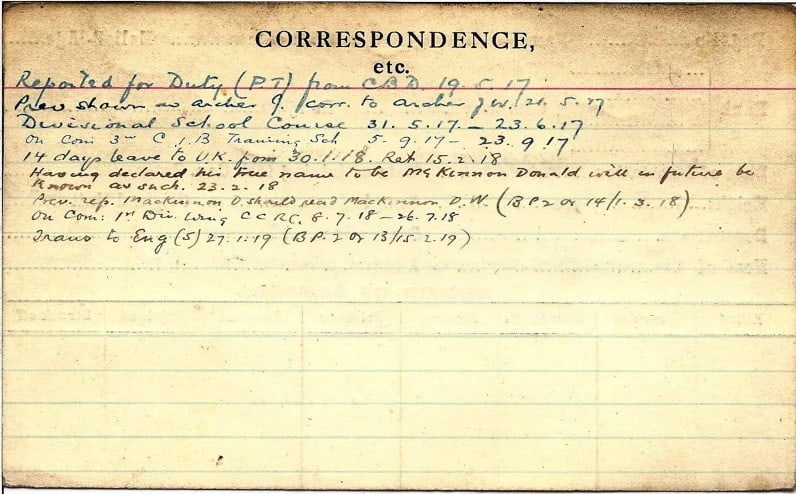 CORRESPONDENCE,
etc.
Reported for Duty (P.T) from C.B.D. 19.5.17
Prev shown as archer J. corr. to archer J.W. 21.5.17
Divisional School Course 31.5.17 – 23.6.17
On Com 3rd C.I.B Training Sch 5.9.17 – 23.9.17
14 days leave to U.K. from 30.1.18. Ret 15.2.18
Having declared his true name to be McKinnon Donald will in future be
known as such. 23.2.18
Prev. rep. Mackinnon D. should read Mackinnon D.W. (B.P.2 or 14/1.3.18)
On Com: 1st Div. Wing C C R C. 8.7.18 – 26.7.18
Trans to Eng (S) 27.1.19 (B.P.2 or 13/15.2.19)